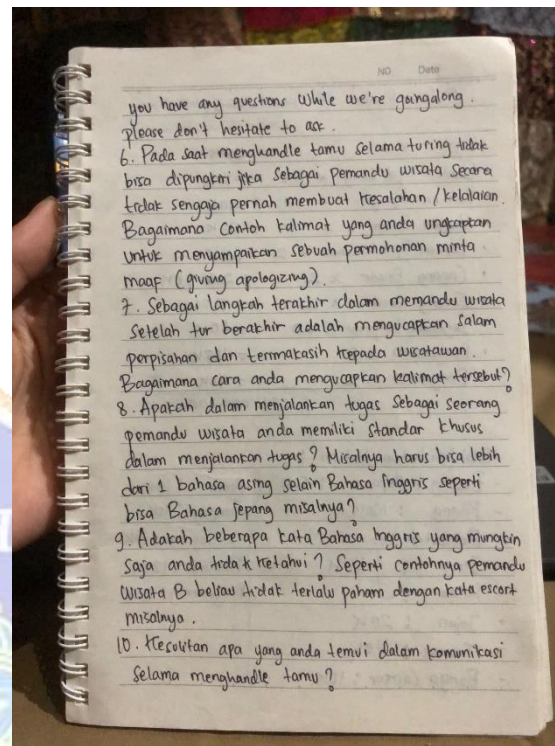 NO Date
you have any questions while we're goingalong.
please don't hesitate to ask.
6. Pada saat menghandle tamu selama turing tidak
bisa dipungkiri jika sebagai pemandu wisata secara
tidak sengaja pernah membuat kesalahan / kelalaian.
Bagaimana contoh kalimat yang anda ungkapkan
untuk menyampaikan sebuah permohonan minta
maaf (giving apologizing).
7. Sebagai langkah terakhir dalam memandu wisata
setelah tur berakhir adalah mengucapkan salam
perpisahan dan terimakasih kepada wisatawan.
Bagaimana cara anda mengucapkan kalimat tersebut?
8. Apakah dalam menjalankan tugas sebagai seorang
pemandu wisata anda memiliki standar khusus
dalam menjalankan tugas? Misalnya harus bisa lebih
dari 1 bahasa asing selain Bahasa Inggris seperti
bisa Bahasa Jepang misalnya?
9. Adakah beberapa kata Bahasa Inggris yang mungkin
saja anda tidak ketahui? Seperti contohnya pemandu
wisata B beliau tidak terlalu paham dengan kata escort
misalnya.
10. Kesulitan apa yang anda temui dalam komunikasi
selama menghandle tamu?